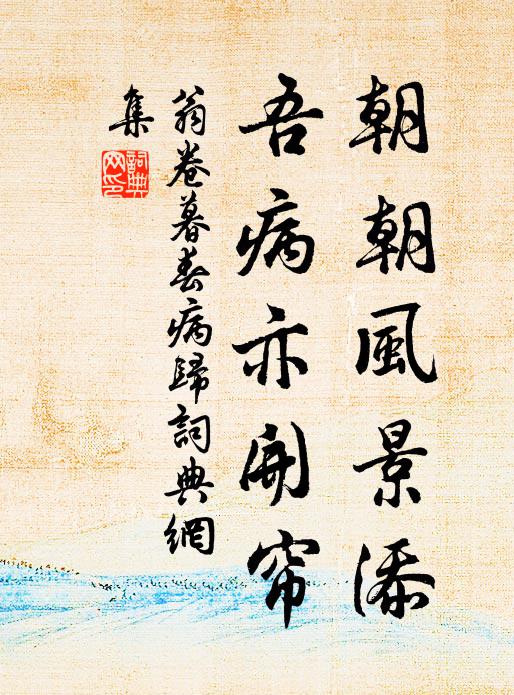 朝朝風景添
吾病亦開帘
翁卷暮春病歸詞典網
集
詞典網印